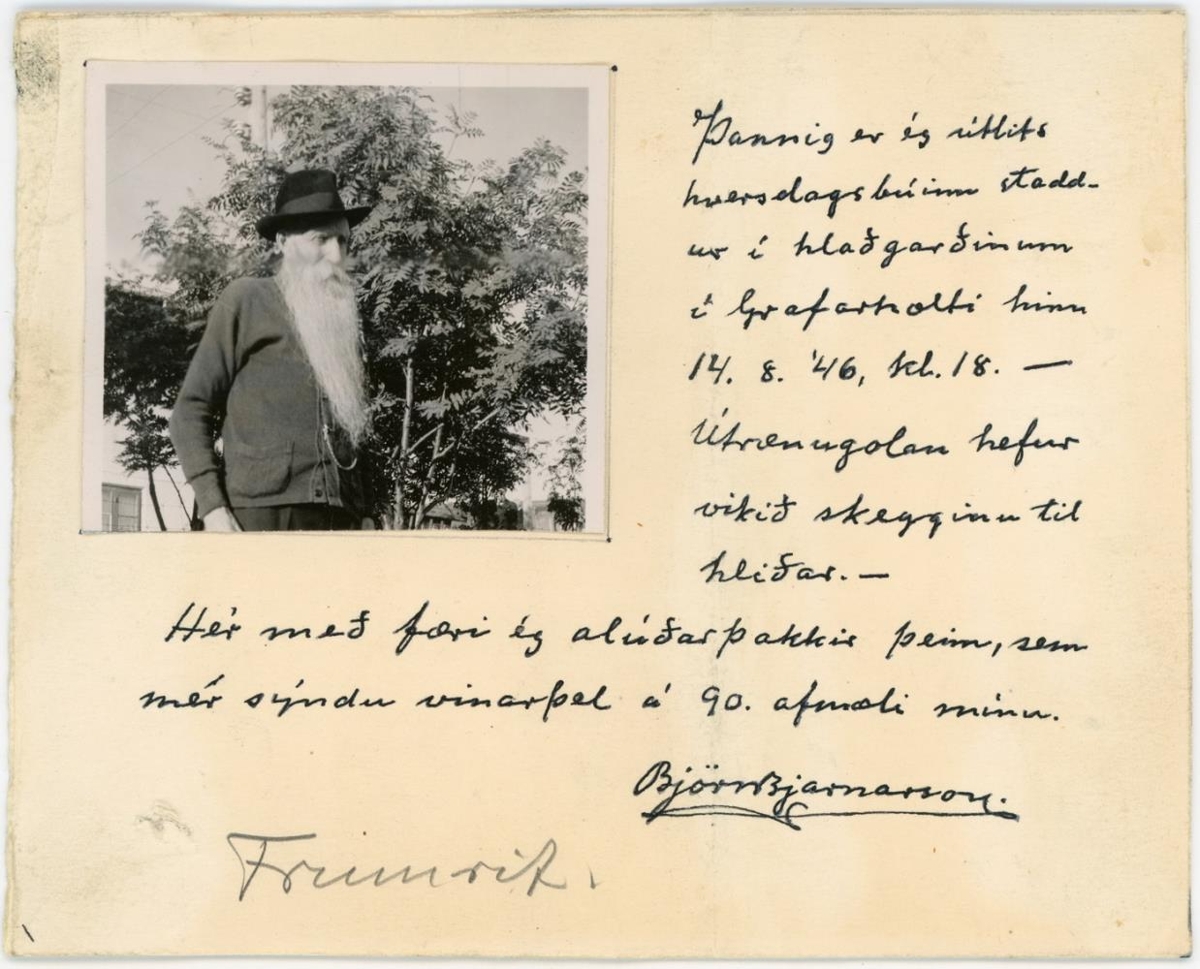 Þannig er ég útlits
hversdagsbúinn stadd-
ur í hlaðgarðinum
í Grafarholti hinn
14. 8. '46, kl. 18. —
Útrænugolan hefur
vikið skegginu til
hliðar. —
Hér með færi ég alúðarþakkir þeim, sem
mér sýndu vinarþel á 90. afmæli mínu.
Björn Bjarnarson.
Frumrit.